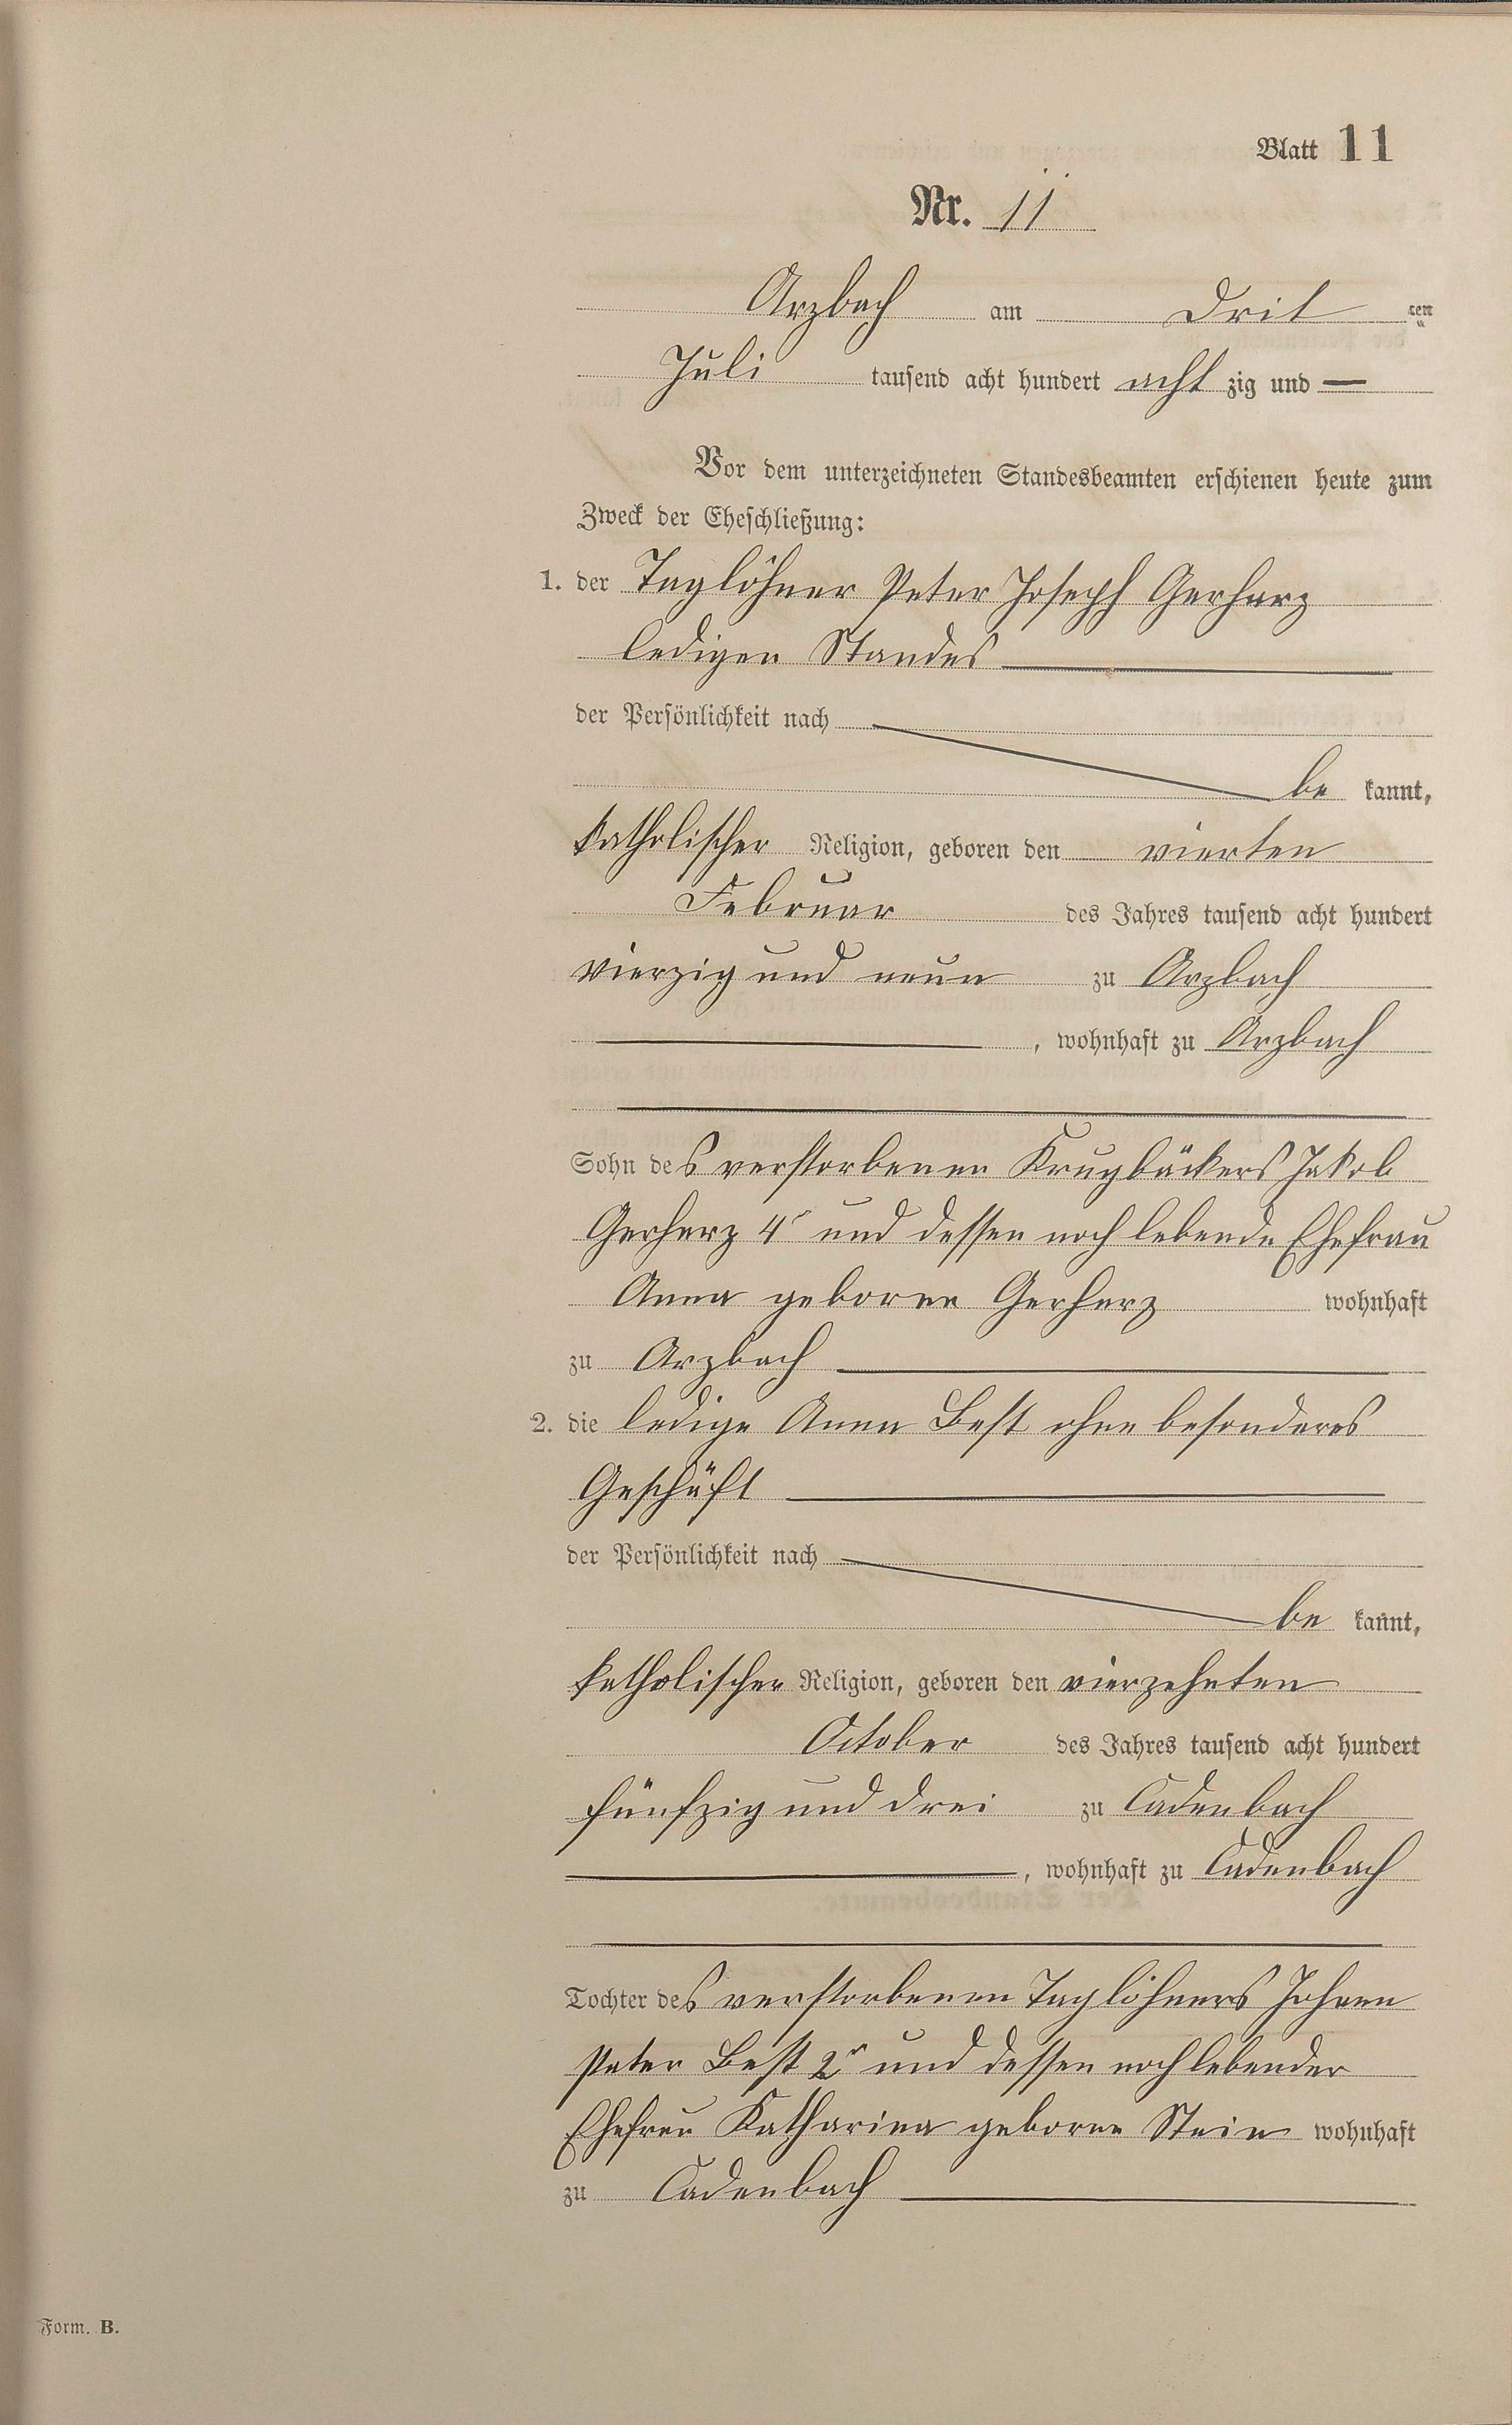 Blatt 11
Nr. 11
Arzbach am Drit ten
Juli tausend acht hundert acht zig und —
Vor dem unterzeichneten Standesbeamten erschienen heute zum
Zweck der Eheschließung:
1. der Taglöhner Peter Joseph Gerharz
ledigen Standes
der Persönlichkeit nach
be kannt,
katholischer Religion, geboren den vierten
Februar des Jahres tausend acht hundert
vierzig und neun zu Arzbach
, wohnhaft zu Arzbach
Sohn des verstorbenen Krugbäckers Jakob
Gerharz 4r und dessen noch lebende Ehefrau
Anna geborne Gerharz wohnhaft
zu Arzbach
2. die ledige Anna Best ohne besonderes
Geschäft
der Persönlichkeit nach
be kannt,
katholischer Religion, geboren den vierzehnten
October des Jahres tausend acht hundert
fünfzig und drei zu Cadenbach
, wohnhaft zu Cadenbach
Tochter des verstorbenen Taglöhners Johann
Peter Best 2r und dessen noch lebender
Ehefrau Katharina geborne Stein wohnhaft
zu Cadenbach
Form. B.